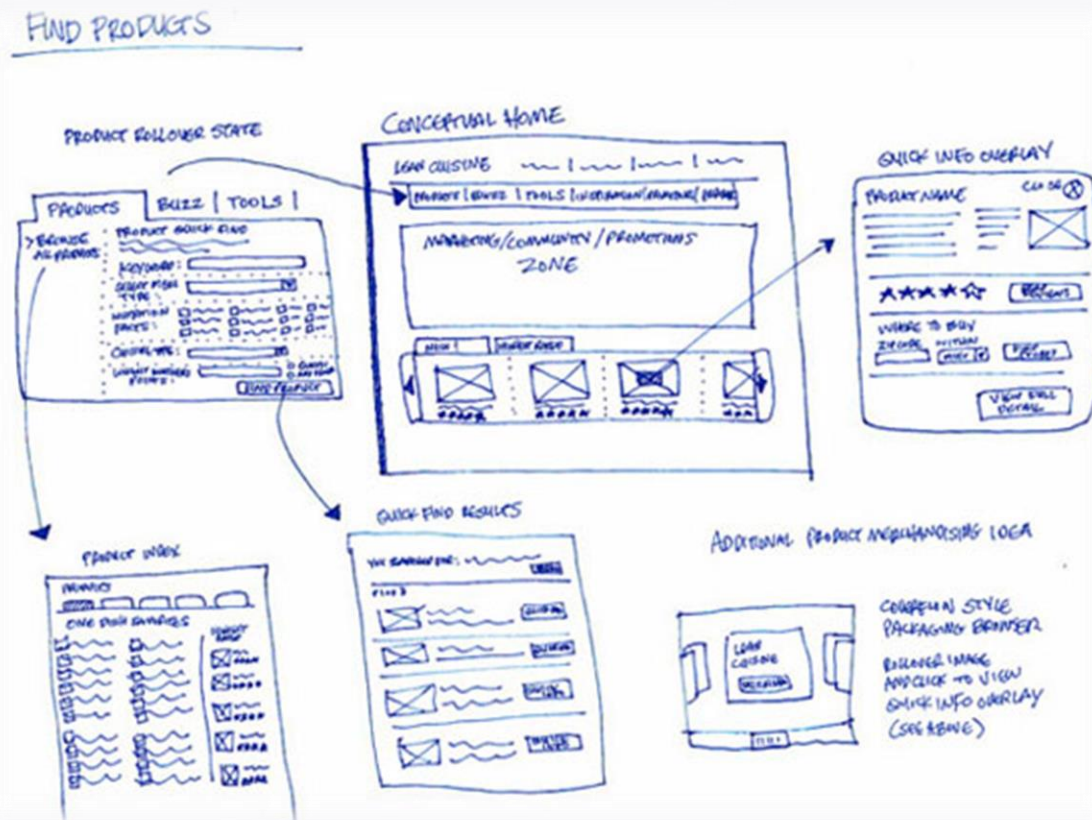 FIND PRODUCTS
PRODUCT ROLLOVER STATE
PRODUCTS
BUZZ | TOOLS |
> BROWSE
ALL PRODUCTS
PRODUCT QUICK FIND
KEYWORD:
TYPE:
NUTRITION
FACTS:
POINTS:
FIND PRODUCT
CONCEPTUAL HOME
LEAN CUISINE
PRODUCTS | BUZZ | TOOLS |
MARKETING/COMMUNITY/PROMOTIONS
ZONE
QUICK INFO OVERLAY
PRODUCT NAME
CLOSE X
WHERE TO BUY
ZIPCODE WITHIN
VIEW FULL
DETAIL
PRODUCT INDEX
PRODUCTS
ONE DISH FAVORITES
QUICK FIND RESULTS
YOU SEARCHED FOR:
ADDITIONAL PRODUCT MERCHANDISING IDEA
LEAN
CUISINE
COVERFLOW STYLE
PACKAGING BROWSER
ROLLOVER IMAGE
AND CLICK TO VIEW
QUICK INFO OVERLAY
(SEE ABOVE)